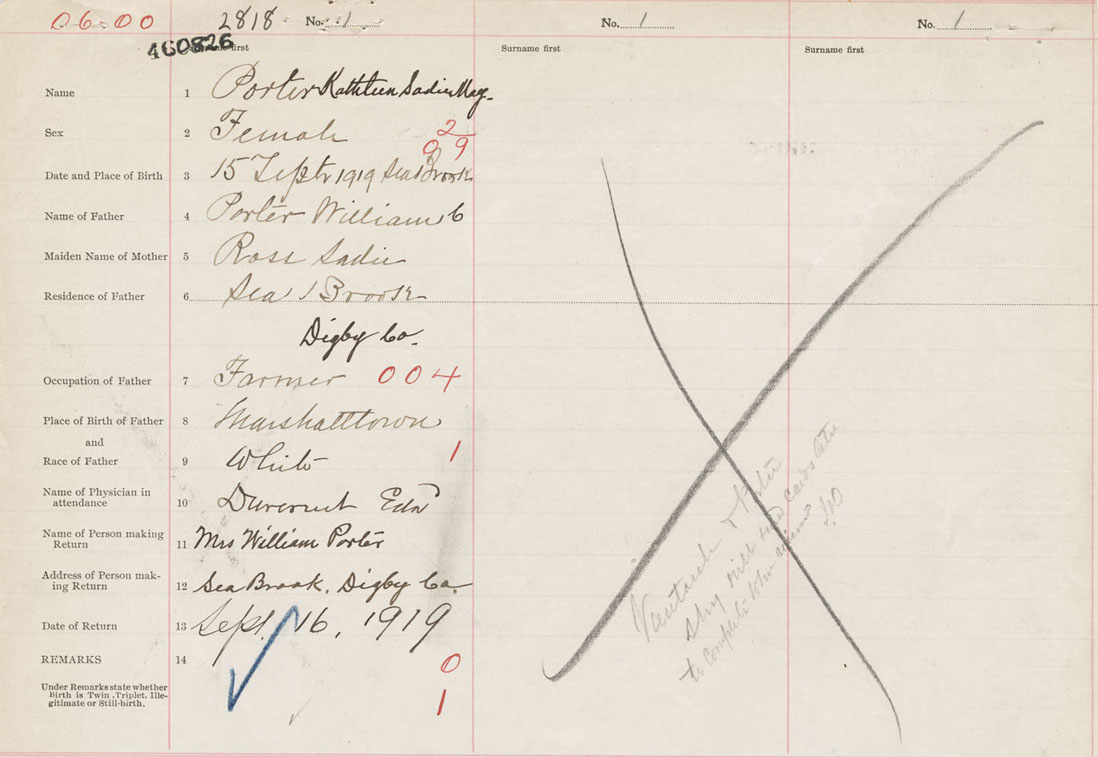 06-00 2818 No. 1 No. 1 No. 1
460826 Surname first Surname first Surname first
Name 1 Porter Kathleen Sadie May.
Sex 2 Female 2
09
Date and Place of Birth 3 15 Septr 1919 Sea Brook
Name of Father 4 Porter William C
Maiden Name of Mother 5 Ross Sadie
Residence of Father 6 Sea Brook
Digby Co.
Occupation of Father 7 Farmer 004
Place of Birth of Father 8 Marshalltown
and
Race of Father 9 White 1
Name of Physician in
attendance 10
Name of Person making
Return 11 Mrs William Porter
Address of Person mak-
ing Return 12 Sea Brook, Digby Co.
Date of Return 13 Sept. 16, 1919
REMARKS 14 0
Under Remarks state whether
Birth is Twin, Triplet, Ille-
gitimate or Still-birth. 1
will cards
to complete